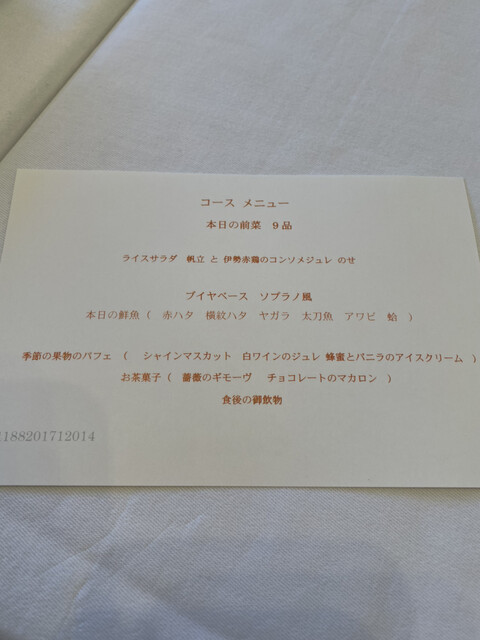 コース メニュー
本日の前菜 9品
ライスサラダ 帆立 と 伊勢赤鶏のコンソメジュレ のせ
ブイヤベース ソプラノ風
本日の鮮魚（ 赤ハタ 横紋ハタ ヤガラ 太刀魚 アワビ 蛤 ）
季節の果物のパフェ （ シャインマスカット 白ワインのジュレ 蜂蜜とバニラのアイスクリーム ）
お茶菓子（ 薔薇のギモーヴ チョコレートのマカロン ）
食後の御飲物
188201712014